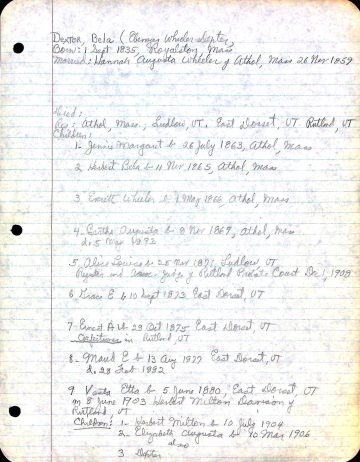 Dexter, Bela (Ebenezer Wheeler Dexter,
Born: 1 Sept 1835, Royalston, Mass
Married: Hannah Augusta Wheeler of Athol, Mass 26 Nov 1859
Died:
Res: Athol, Mass., Ludlow, VT. East Dorset, VT Rutland, VT
Children:
1. Jennie Margaret b 26 July 1863, Athol, Mass
2. Herbert Bela b 11 Nov 1865, Athol, Mass
3. Everett Wheeler b 1 May 1866 Athol, Mass
4. Bertha Augusta b 8 Nov 1869, Athol, Mass
d. 5 May 1892
5. Alice Louise b 25 Nov 1871, Ludlow, VT
Register and Judge of Rutland Probate Court Dec 1, 1908
6 Grace E b 10 Sept 1873 East Dorset, VT
7. Ernest A b 23 Oct 1875 East Dorset, VT
in Rutland, VT
8. Maud E b 13 Aug 1877 East Dorset, VT
d. 28 Feb 1882
9. Vesta Etta b 5 June 1880, East Dorset, VT
m 8 June 1903 Herbert Milton Davison of
Rutland, VT
Children: 1. Herbert Milton b 10 July 1904
2. Elizabeth Augusta b 10 Mar 1906
also
3 Dexter